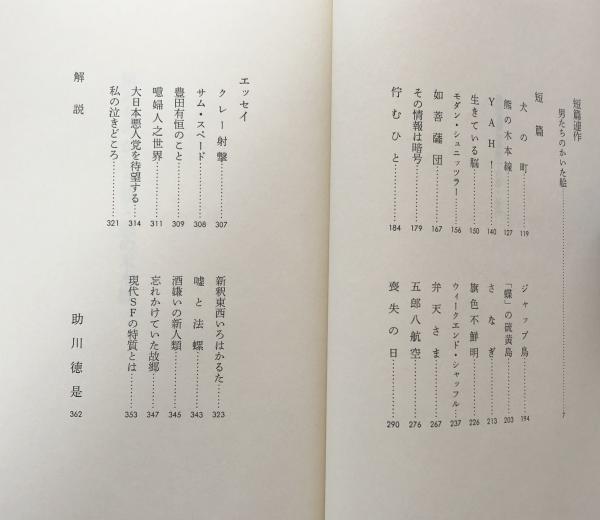 短篇連作
男たちのかいた絵……7
短篇
犬の町……119
熊の木本線……127
YAH!……140
生きている脳……150
モダン・シュニッツラー……156
如菩薩団……167
その情報は暗号……179
佇むひと……184
ジャップ鳥……194
「蝶」の硫黄島……203
さなぎ……213
旗色不鮮明……226
ウィークエンド・シャッフル……237
弁天さま……267
五郎八航空……276
喪失の日……290
エッセイ
クレー射撃……307
サム・スペード……308
豊田有恒のこと……309
噫婦人之世界……311
大日本悪人党を待望する……314
私の泣きどころ……321
新釈東西いろはかるた……323
嘘と法螺……343
酒嫌いの新人類……345
忘れかけていた故郷……347
現代SFの特質とは……353
解説 助川徳是 362